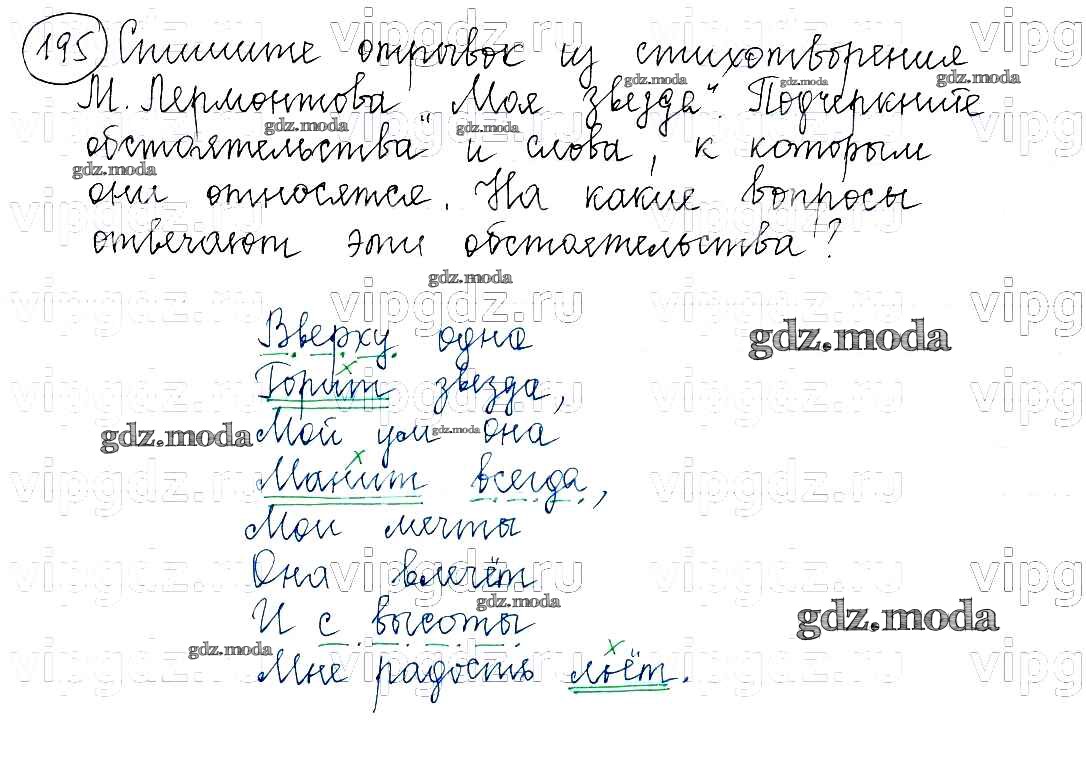 195 Спишите отрывок из стихотворения
М. Лермонтова „Моя звезда“. Подчеркните
обстоятельства и слова, к которым
они относятся. На какие вопросы
отвечают эти обстоятельства?
Вверху одна
Горит звезда,
Мой ум она
Манит всегда,
Мои мечты
Она влечёт
И с высоты
Мне радость льёт.
gdz.moda
vipgdz.ru